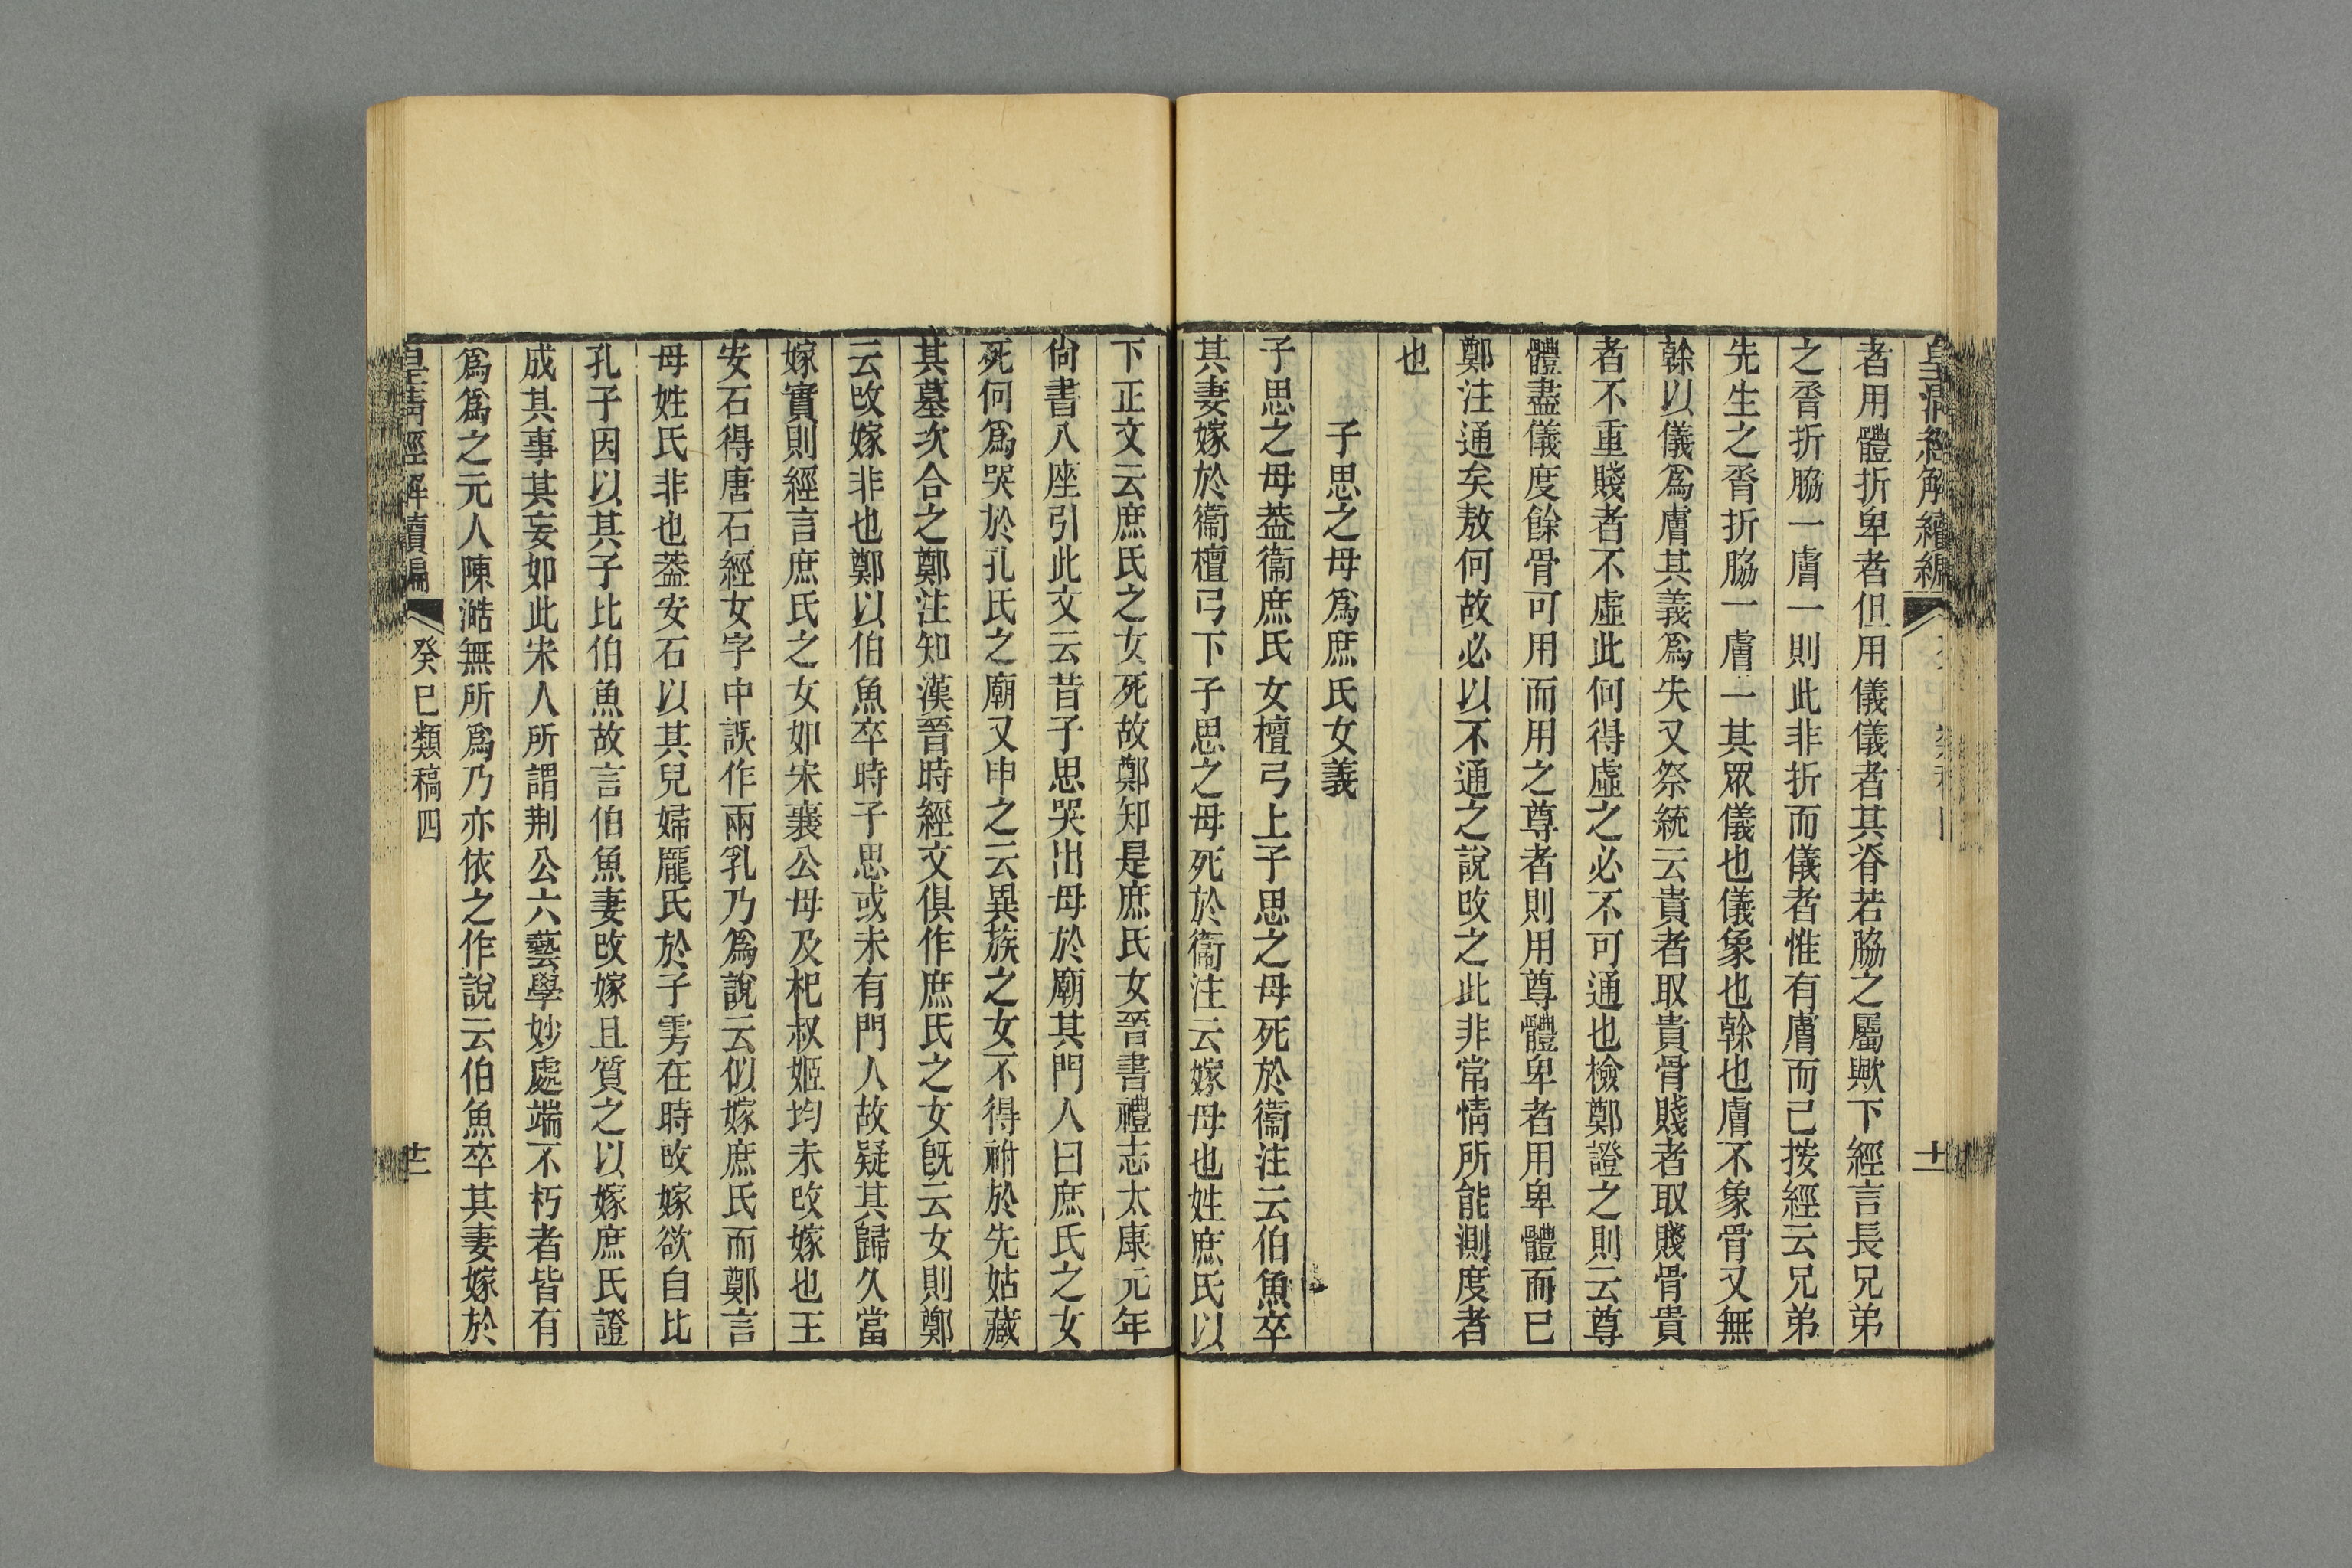 皇清經解續編
十一
者用體折卑者但用儀儀者其脊若脇之屬歟下經言長兄弟
之脀折脇一膚一則此非折而儀者惟有膚而已按經云兄弟
先生之脀折脇一膚一其眾儀也儀象也榦也膚不象骨又無
榦以儀爲膚其義爲失又祭統云貴者取貴骨賤者取賤骨貴
者不重賤者不虛此何得虛之必不可通也檢鄭證之則云尊
體盡儀度餘骨可用而用之尊者則用尊體卑者用卑體而已
鄭注通矣敖何故必以不通之說改之此非常情所能測度者
也
子思之母爲庶氏女義
子思之母葢衞庶氏女檀弓上子思之母死於衞注云伯魚卒
其妻嫁於衞檀弓下子思之母死於衞注云嫁母也姓庶氏以
下正文云庶氏之女死故鄭知是庶氏女晉書禮志太康元年
尙書八座引此文云昔子思哭出母於廟其門人曰庶氏之女
死何爲哭於孔氏之廟又申之云異族之女不得祔於先姑藏
其墓次合之鄭注知漢晉時經文俱作庶氏之女旣云女則鄭
云改嫁非也鄭以伯魚卒時子思或未有門人故疑其歸久當
嫁實則經言庶氏之女如宋襄公母及杞叔姬均未改嫁也王
安石得唐石經女字中誤作兩乳乃爲說云似嫁庶氏而鄭言
母姓氏非也葢安石以其兒婦龐氏於子雱在時改嫁欲自比
孔子因以其子比伯魚故言伯魚妻改嫁且質之以嫁庶氏證
成其事其妄如此宋人所謂荆公六藝學妙處端不朽者皆有
爲爲之元人陳澔無所爲乃亦依之作說云伯魚卒其妻嫁於
皇清經解續編
癸巳類稿四